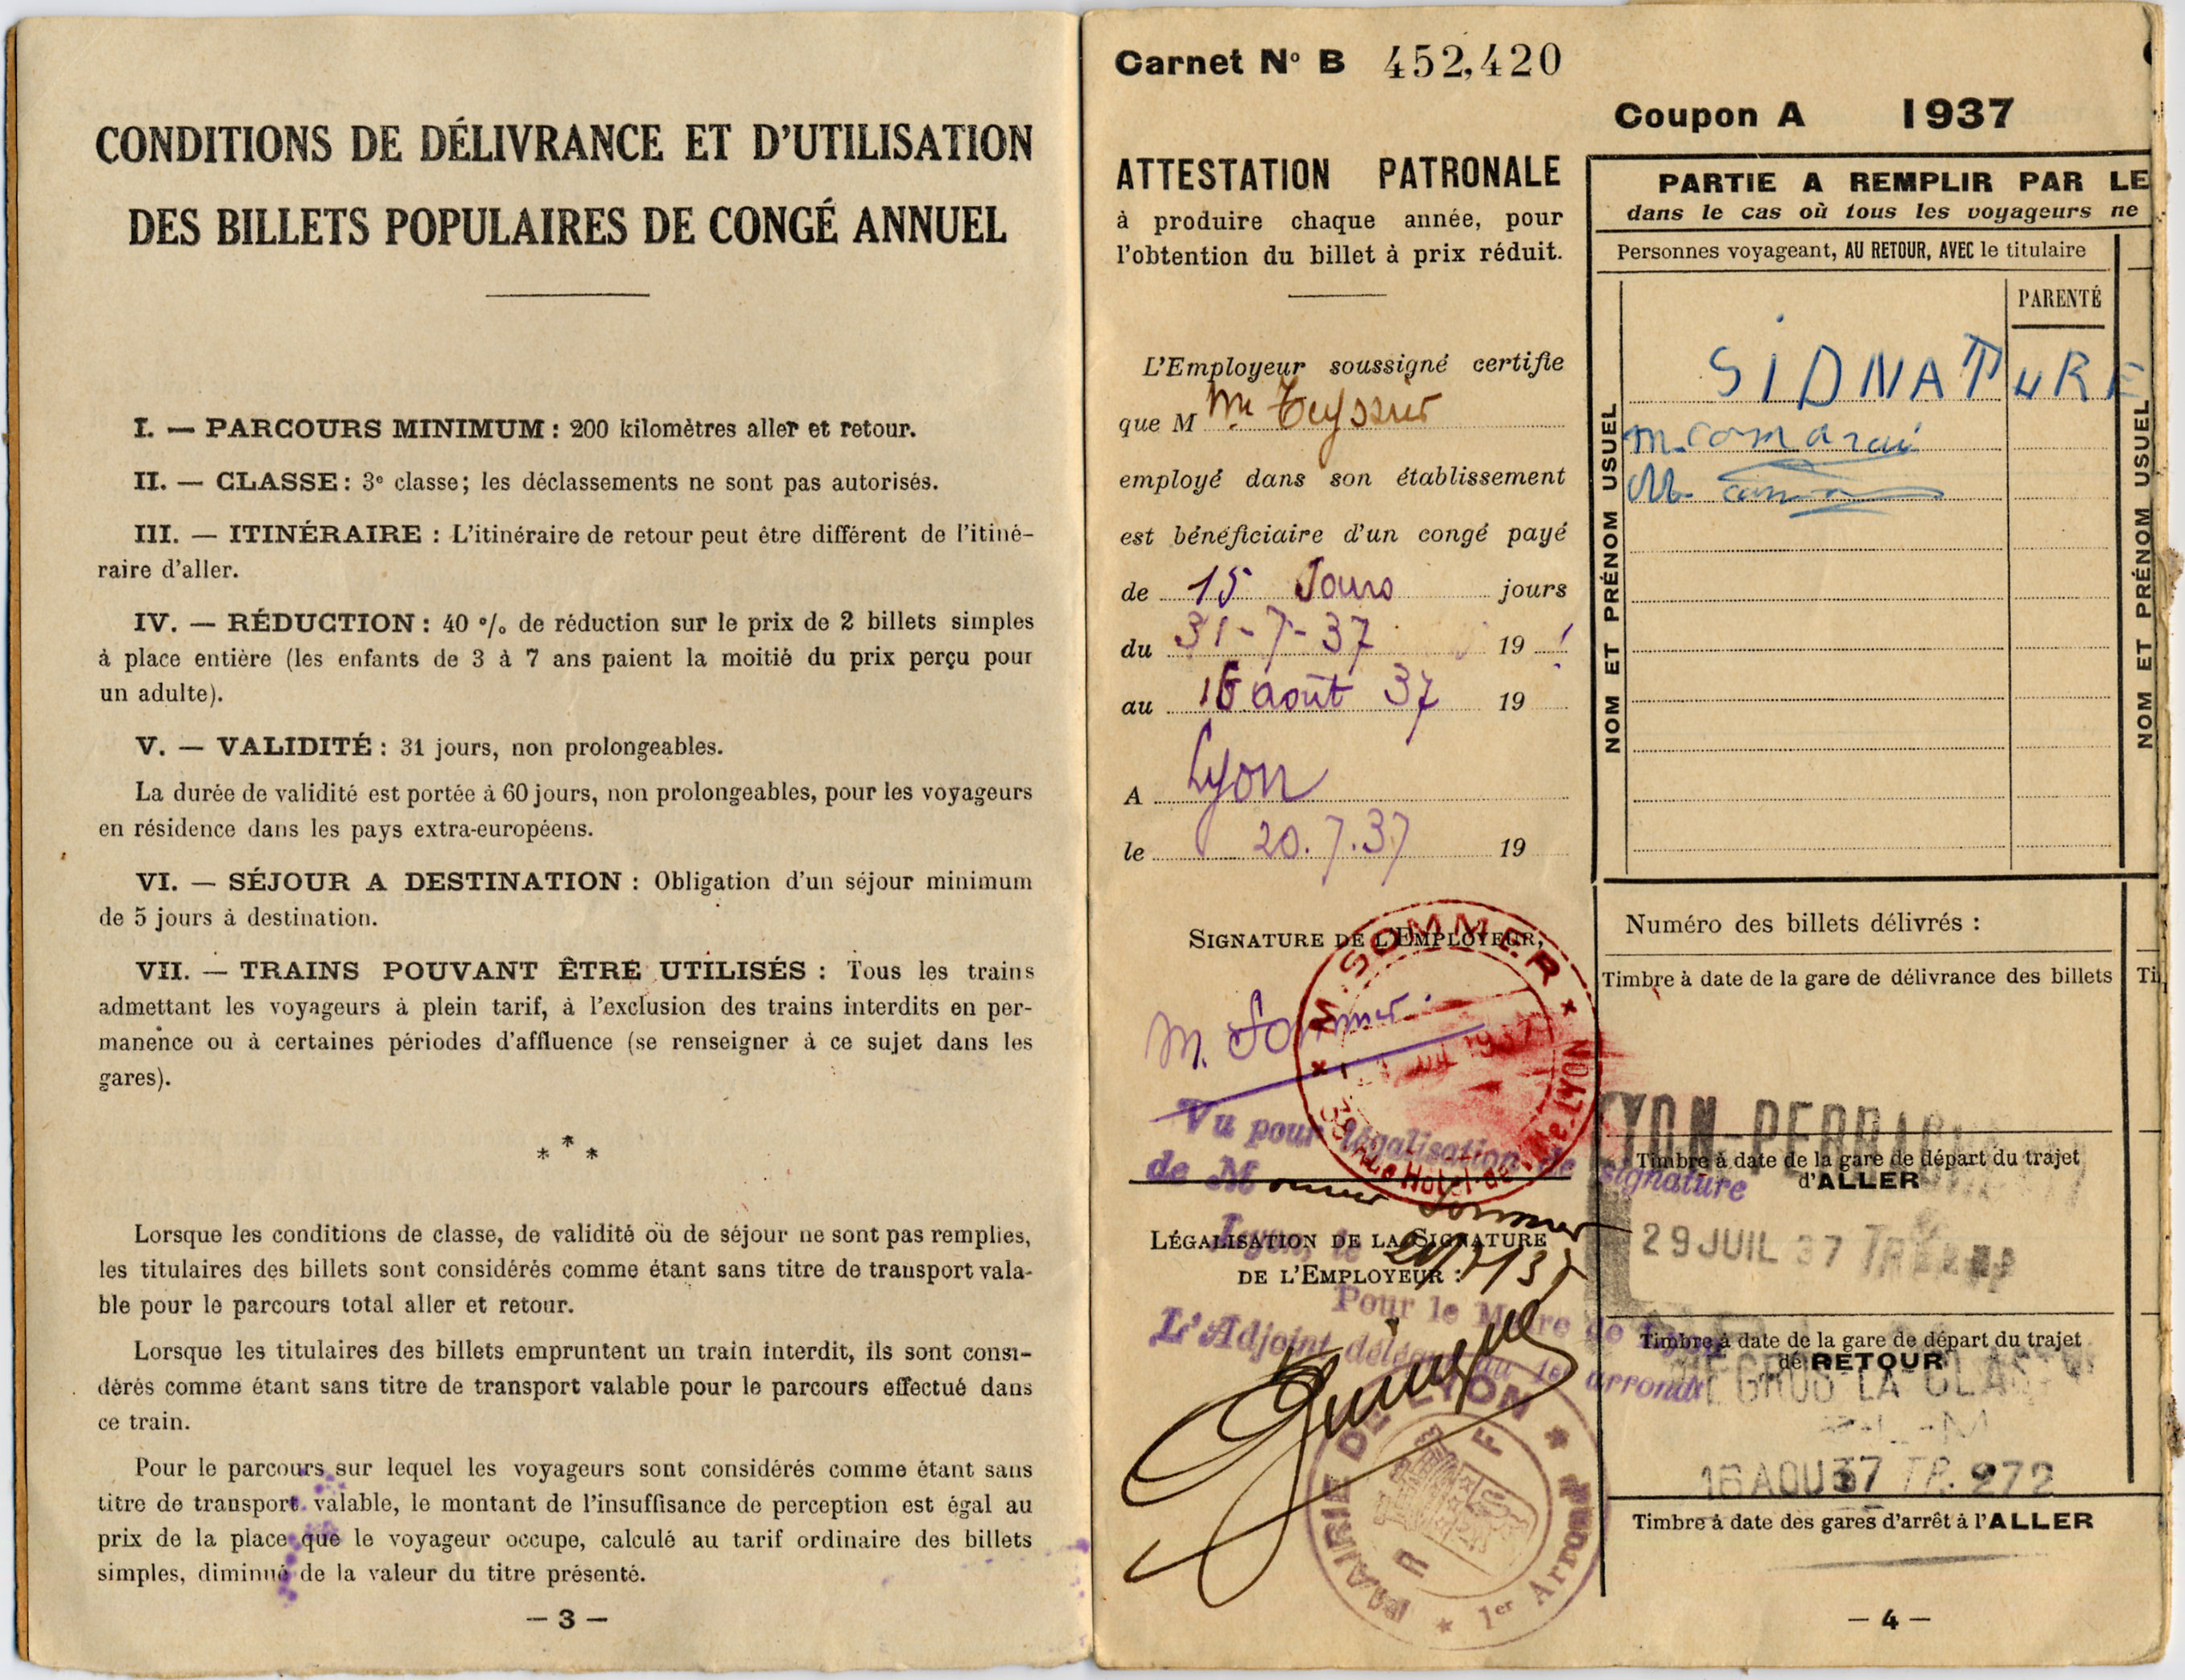 CONDITIONS DE DÉLIVRANCE ET D'UTILISATION
DES BILLETS POPULAIRES DE CONGÉ ANNUEL
I. — PARCOURS MINIMUM : 200 kilomètres aller et retour.
II. — CLASSE : 3e classe; les déclassements ne sont pas autorisés.
III. — ITINÉRAIRE : L'itinéraire de retour peut être différent de l'itiné-
raire d'aller.
IV. — RÉDUCTION : 40 % de réduction sur le prix de 2 billets simples
à place entière (les enfants de 3 à 7 ans paient la moitié du prix perçu pour
un adulte).
V. — VALIDITÉ : 31 jours, non prolongeables.
La durée de validité est portée à 60 jours, non prolongeables, pour les voyageurs
en résidence dans les pays extra-européens.
VI. — SÉJOUR A DESTINATION : Obligation d'un séjour minimum
de 5 jours à destination.
VII. — TRAINS POUVANT ÊTRE UTILISÉS : Tous les trains
admettant les voyageurs à plein tarif, à l'exclusion des trains interdits en per-
manence ou à certaines périodes d'affluence (se renseigner à ce sujet dans les
gares).
* * *
Lorsque les conditions de classe, de validité où de séjour ne sont pas remplies,
les titulaires des billets sont considérés comme étant sans titre de transport vala-
ble pour le parcours total aller et retour.
Lorsque les titulaires des billets empruntent un train interdit, ils sont consi-
dérés comme étant sans titre de transport valable pour le parcours effectué dans
ce train.
Pour le parcours sur lequel les voyageurs sont considérés comme étant sans
titre de transport valable, le montant de l'insuffisance de perception est égal au
prix de la place que le voyageur occupe, calculé au tarif ordinaire des billets
simples, diminué de la valeur du titre présenté.
— 3 —
Carnet No B 452,420
ATTESTATION PATRONALE
à produire chaque année, pour
l'obtention du billet à prix réduit.
L'Employeur soussigné certifie
que M Me Teyssier
employé dans son établissement
est bénéficiaire d'un congé payé
de 15 Jours jours
du 31-7-37 19
au 16 août 37 19
A Lyon
le 20.7.37 19
SIGNATURE DE L'EMPLOYEUR,
M. SOMMER
M. Sommer
Hotel-de-Ville. LYON
Vu pour légalisation de signature
de M Sommer
LÉGALISATION DE LA SIGNATURE
Lyon, le
DE L'EMPLOYEUR :
Pour le Maire de Lyon
L'Adjoint délégué au 1er arrondt
MAIRIE DE LYON
R F
1er Arrondt
Coupon A 1937
PARTIE A REMPLIR PAR LE
dans le cas où tous les voyageurs ne
Personnes voyageant, AU RETOUR, AVEC le titulaire
PARENTÉ
NOM ET PRÉNOM USUEL
SIDNATURE
NOM ET PRÉNOM USUEL
Numéro des billets délivrés :
Timbre à date de la gare de délivrance des billets
Ti
LYON-PERRACHE
Timbre à date de la gare de départ du trajet
d'ALLER
29 JUIL 37
Timbre à date de la gare de départ du trajet
de RETOUR
16 AOU 37 TR. 272
Timbre à date des gares d'arrêt à l'ALLER
— 4 —